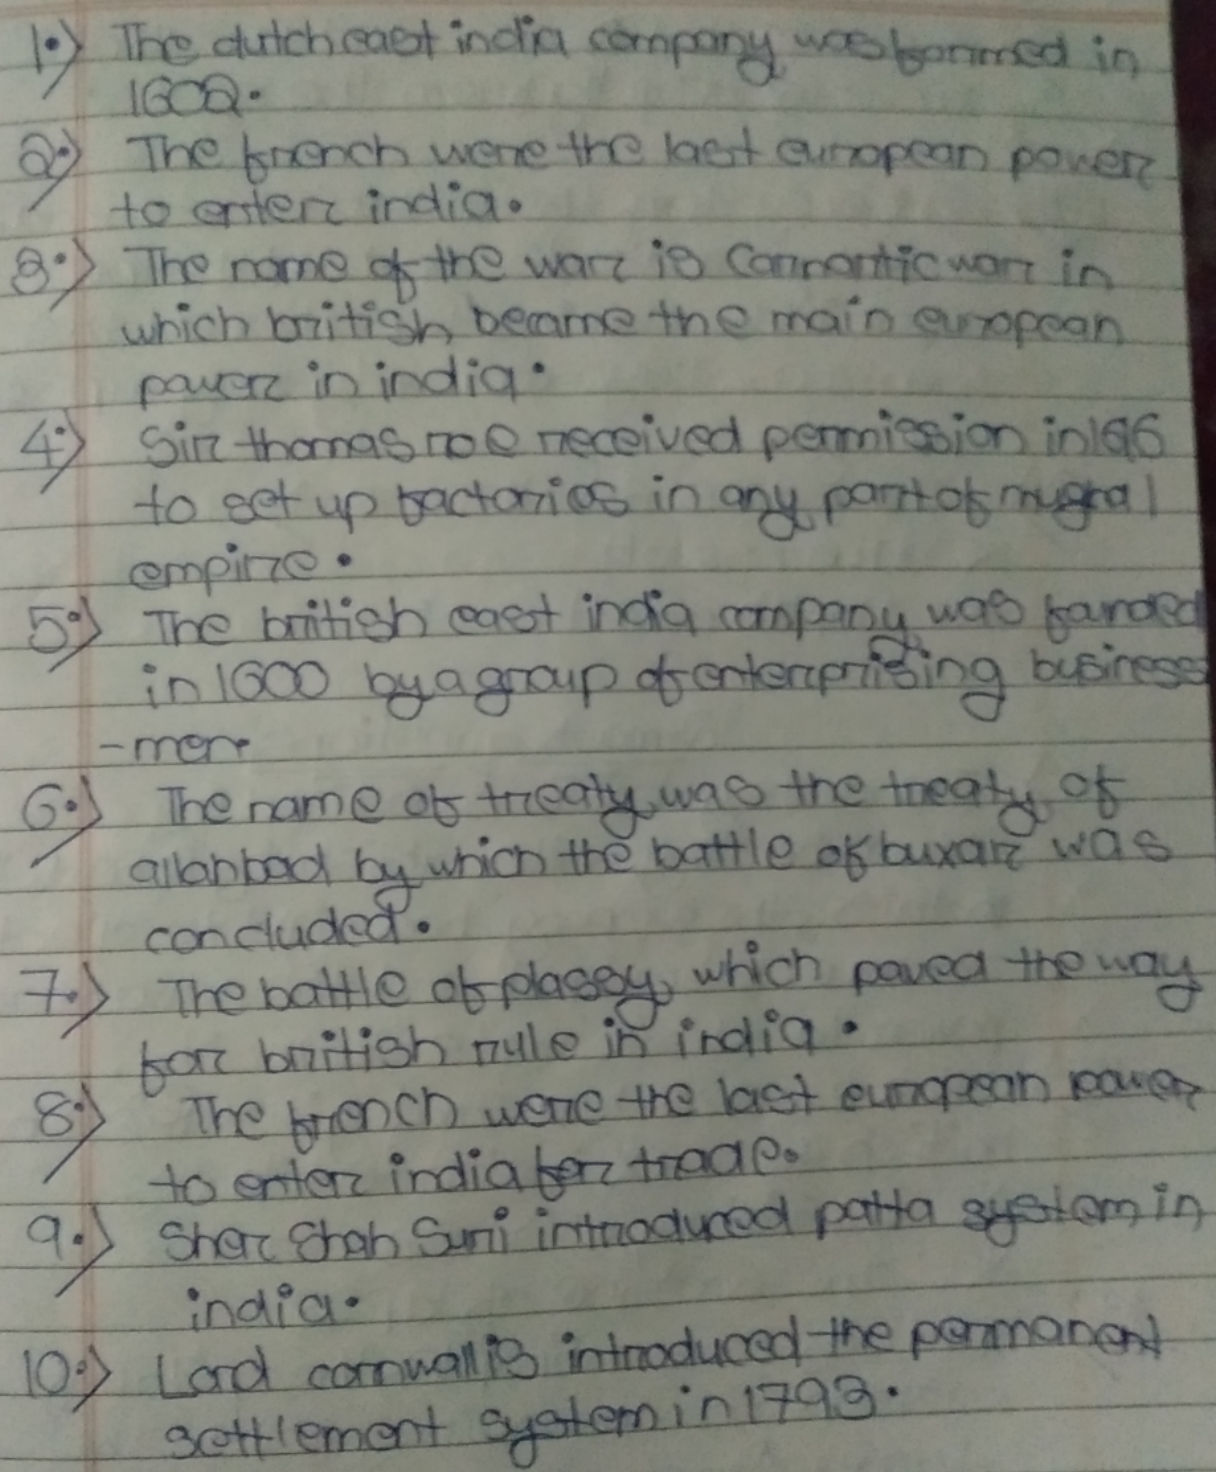 1.) The dutch east india company was formed in
1602.
2.) The french were the last european power
to enter india.
3.) The name of the war is Carnantic war in
which british, became the main european
power in india.
4.) Sir thomas roe received permission in 1616
to set up factories in any part of mughal
empire.
5.) The british east india company was founded
in 1600 by a group of enterprising business
-men.
6.) The name of treaty was the treaty of
allanbad by which the battle of buxar was
concluded.
7.) The battle of plassey, which paved the way
for british rule in india.
8.) The french were the last european power
to enter india for trade.
9.) Sher Shah Suri introduced patta system in
india.
10.) Lord cornwallis introduced the permanent
settlement system in 1793.